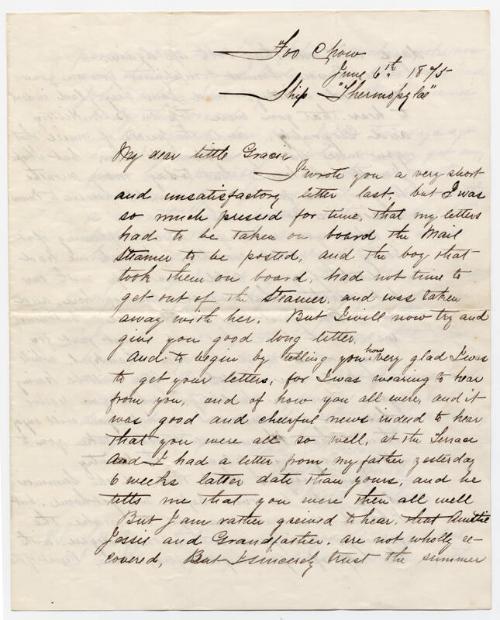 Foo Chow
June 6th. 1875
Ship "Thermopylae"
My dear little Gracie
I wrote you a very short
and unsatisfactory letter last, but I was
so much pressed for time, that my letters
had to be taken on board the Mail
Steamer to be posted, and the boy that
took them on board, had not time to
get out of the Steamer, and was taken
away with her. But I will now try and
give you good long letter.
And to begin by telling you how very glad I was
to get your letters, for I was wearing to hear
from you, and of how you all were, and it
was good and cheerful news indeed to hear
that you were all so well, at the Terrace
And I had a letter from my father yesterday
6 weeks latter date than yours, and he
tells me that you were then all well
But I am rather greived to hear, that Auntie
Jessie and Grandfather, are not wholly re-
covered, But I sincerely trust the summer